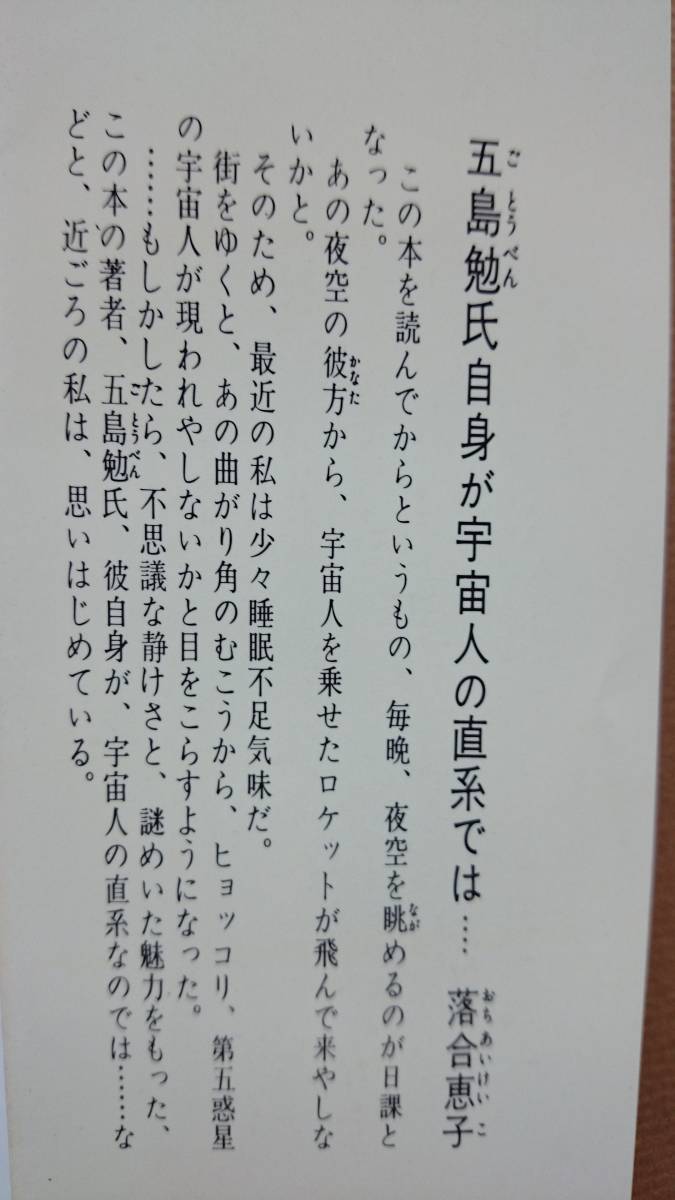 五島勉氏自身が宇宙人の直系では…
落合恵子
この本を読んでからというもの、毎晩、夜空を眺めるのが日課と
なった。
あの夜空の彼方から、宇宙人を乗せたロケットが飛んで来やしな
いかと。
そのため、最近の私は少々睡眠不足気味だ。
街をゆくと、あの曲がり角のむこうから、ヒョッコリ、第五惑星
の宇宙人が現われやしないかと目をこらすようになった。
……もしかしたら、不思議な静けさと、謎めいた魅力をもった、
この本の著者、五島勉氏、彼自身が、宇宙人の直系なのでは……な
どと、近ごろの私は、思いはじめている。